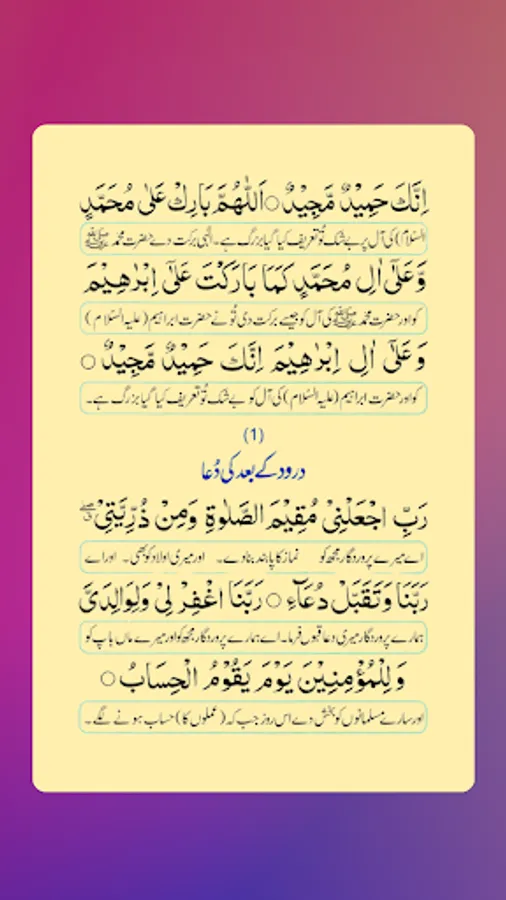 اِنَّكَ حَمِيْدٌ مَّجِيْدٌ○اَللّٰهُمَّ بَارِكْ عَلٰى مُحَمَّدٍ
السلام) کی آل پر بے شک تُو تعریف کیا گیا بزرگ ہے۔ الٰہی برکت دے حضرت محمد ﷺ
وَّعَلٰٓى اٰلِ مُحَمَّدٍ كَمَا بَارَكْتَ عَلٰٓى اِبْرٰهِيْمَ
کو اور حضرت محمد ﷺ کی آل کو جیسے برکت دی تُو نے حضرت ابراہیم (علیہ السّلام)
وَعَلٰٓى اٰلِ اِبْرٰهِيْمَ اِنَّكَ حَمِيْدٌ مَّجِيْدٌ ○
کو اور حضرت ابراہیم (علیہ السّلام) کی آل کو بے شک تُو تعریف کیا گیا بزرگ ہے۔
(1)
درود کے بعد کی دُعا
رَبِّ اجْعَلْنِىْ مُقِيْمَ الصَّلٰوةِ وَمِنْ ذُرِّيَّتِىْ
اے میرے پروردگار مجھ کو نماز کا پابند بنا دے۔ اور میری اولاد کو بھی۔ اور اے
رَبَّنَا وَتَقَبَّلْ دُعَآءِ ○ رَبَّنَا اغْفِرْ لِىْ وَلِوَالِدَىَّ
ہمارے پروردگار میری دعا قبول فرما۔ اے ہمارے پروردگار مجھ کو اور میرے ماں باپ کو
وَلِلْمُؤْمِنِيْنَ يَوْمَ يَقُوْمُ الْحِسَابُ ○
اور سارے مسلمانوں کو بخش دے اس روز جب کہ (عملوں کا) حساب ہونے لگے۔